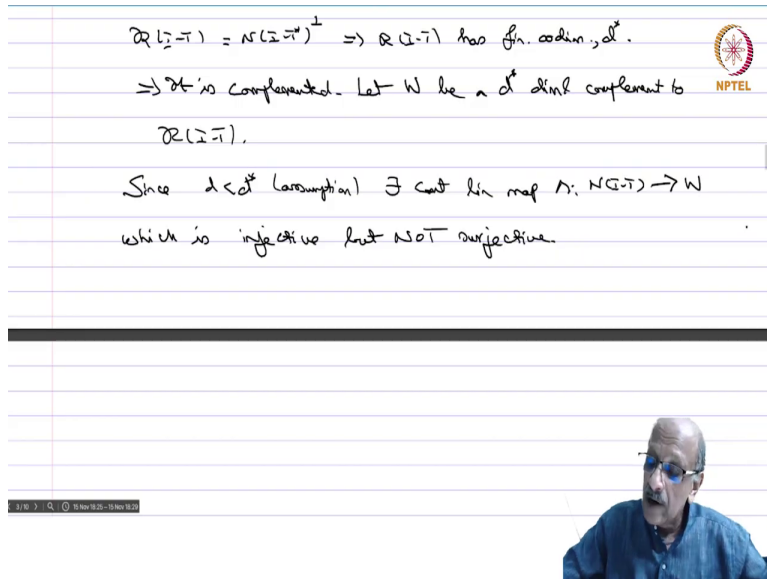 R(I-T) = N(I-T*)^⊥ => R(I-T) has fin. codim., d*.
=> It is complemented. Let W be a d* diml complement to
R(I-T).
Since d<d* (assumption) ∃ cont lin map Λ: N(I-T) → W
which is injective but NOT surjective.
NPTEL
3/10 15 Nov 18:25 - 15 Nov 18:29